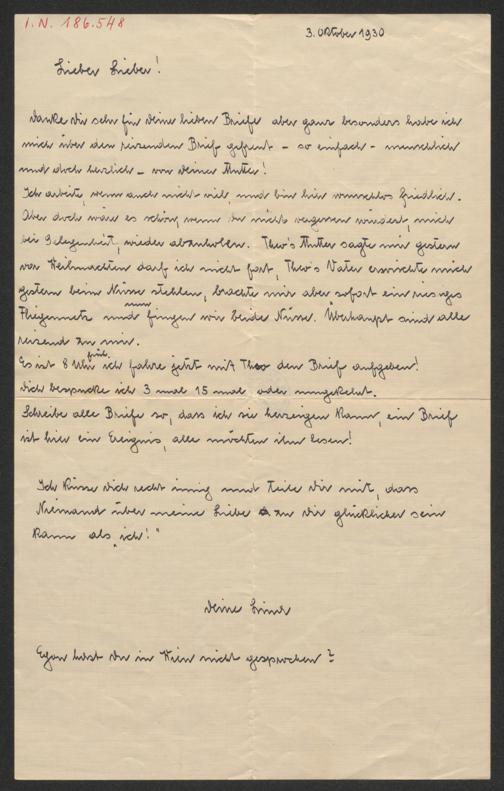 I.N. 186.548
3. Oktober 1930
Lieber Lieber!
Danke Dir sehr für Deine lieben Briefe aber ganz besonders habe ich
mich über den reizenden Brief gefreut – so einfach – menschlich
und doch herzlich – von Deiner Mutter!
Ich arbeite, wenn auch nicht viel, und bin hier wunschlos friedlich.
Aber doch wäre es schön, wenn Du nicht vergessen würdest, mich
bei Gelegenheit, wieder abzuholen. Theo's Mutter sagte mir gestern
vor Weihnachten darf ich nicht fort, Theo's Vater erwischte mich
gestern beim Nüsse stehlen, brachte mir aber sofort ein riesiges
Fliegennetz und nun fingen wir beide Nüsse. Überhaupt sind alle
reizend zu mir.
Es ist 8 Uhr früh, ich fahre jetzt mit Theo den Brief aufgeben!
Dich bespucke ich 3 mal 15 mal oder umgekehrt.
Schreibe alle Briefe so, dass ich sie herzeigen kann, ein Brief
ist hier ein Ereignis, alle möchten ihn lesen!
Ich küsse Dich recht innig und teile Dir mit, dass
Niemand über meine Liebe zu Dir glücklicher sein
kann als „ich!"
Deine
Egon hast Du in Wien nicht gesprochen?